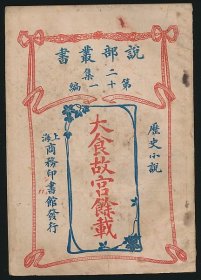 說部叢書
第二十集一編
歷史小說
大食故宮餘載
上海商務印書館發行